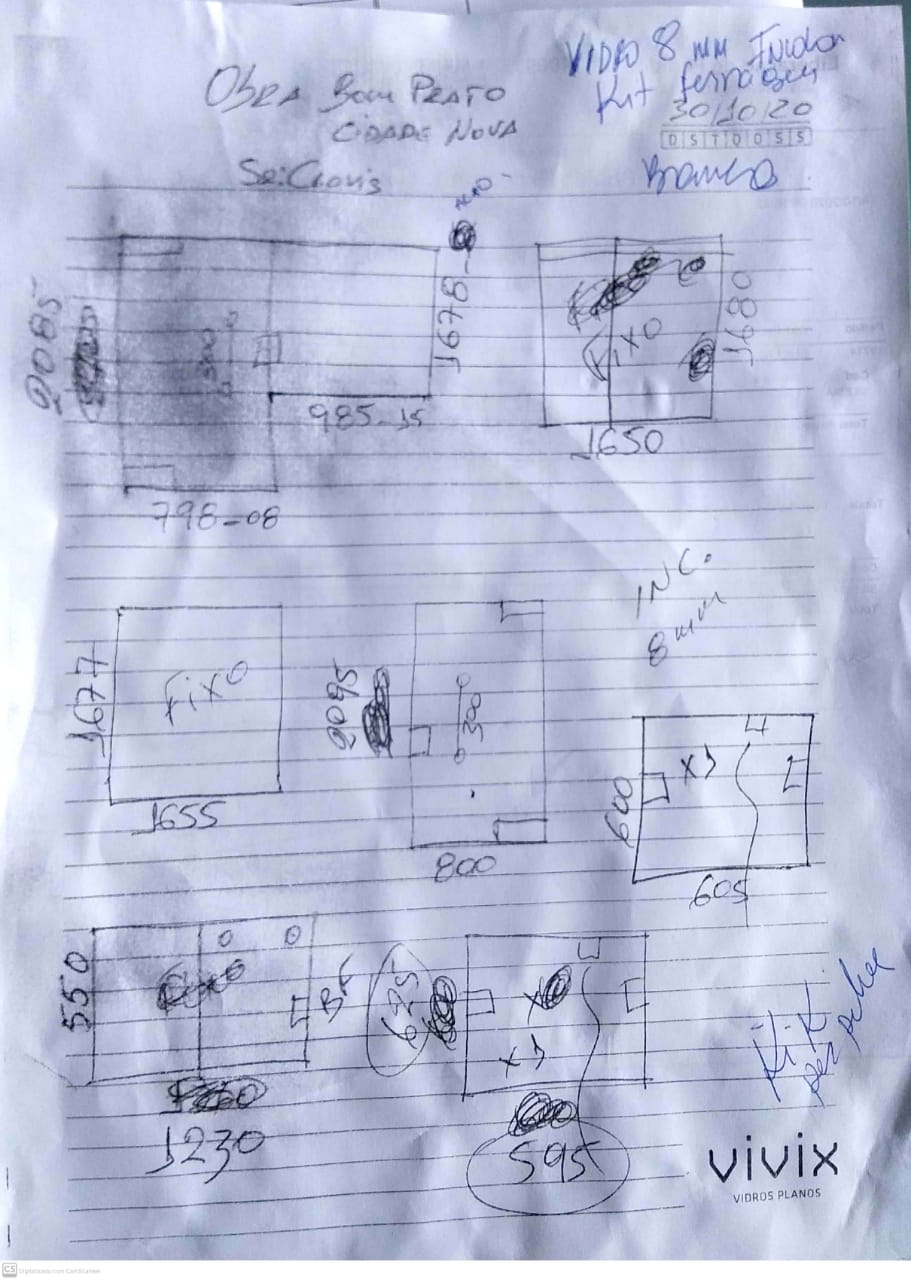 VIDRO 8 mm Incolor
Kit ferragem
30/10/20
D S T Q Q S S
Branco
OBRA Bom PRATO
CIDADE NOVA
Sr: Clovis
2085
300
1678
985-15
798-08
FIXO
1680
1650
1677
FIXO
1655
2095
300
800
INC.
8mm
600
X1
605
550
BT
1230
625
X1
595
Kit
vivix
VIDROS PLANOS
CS Digitalizado com CamScanner